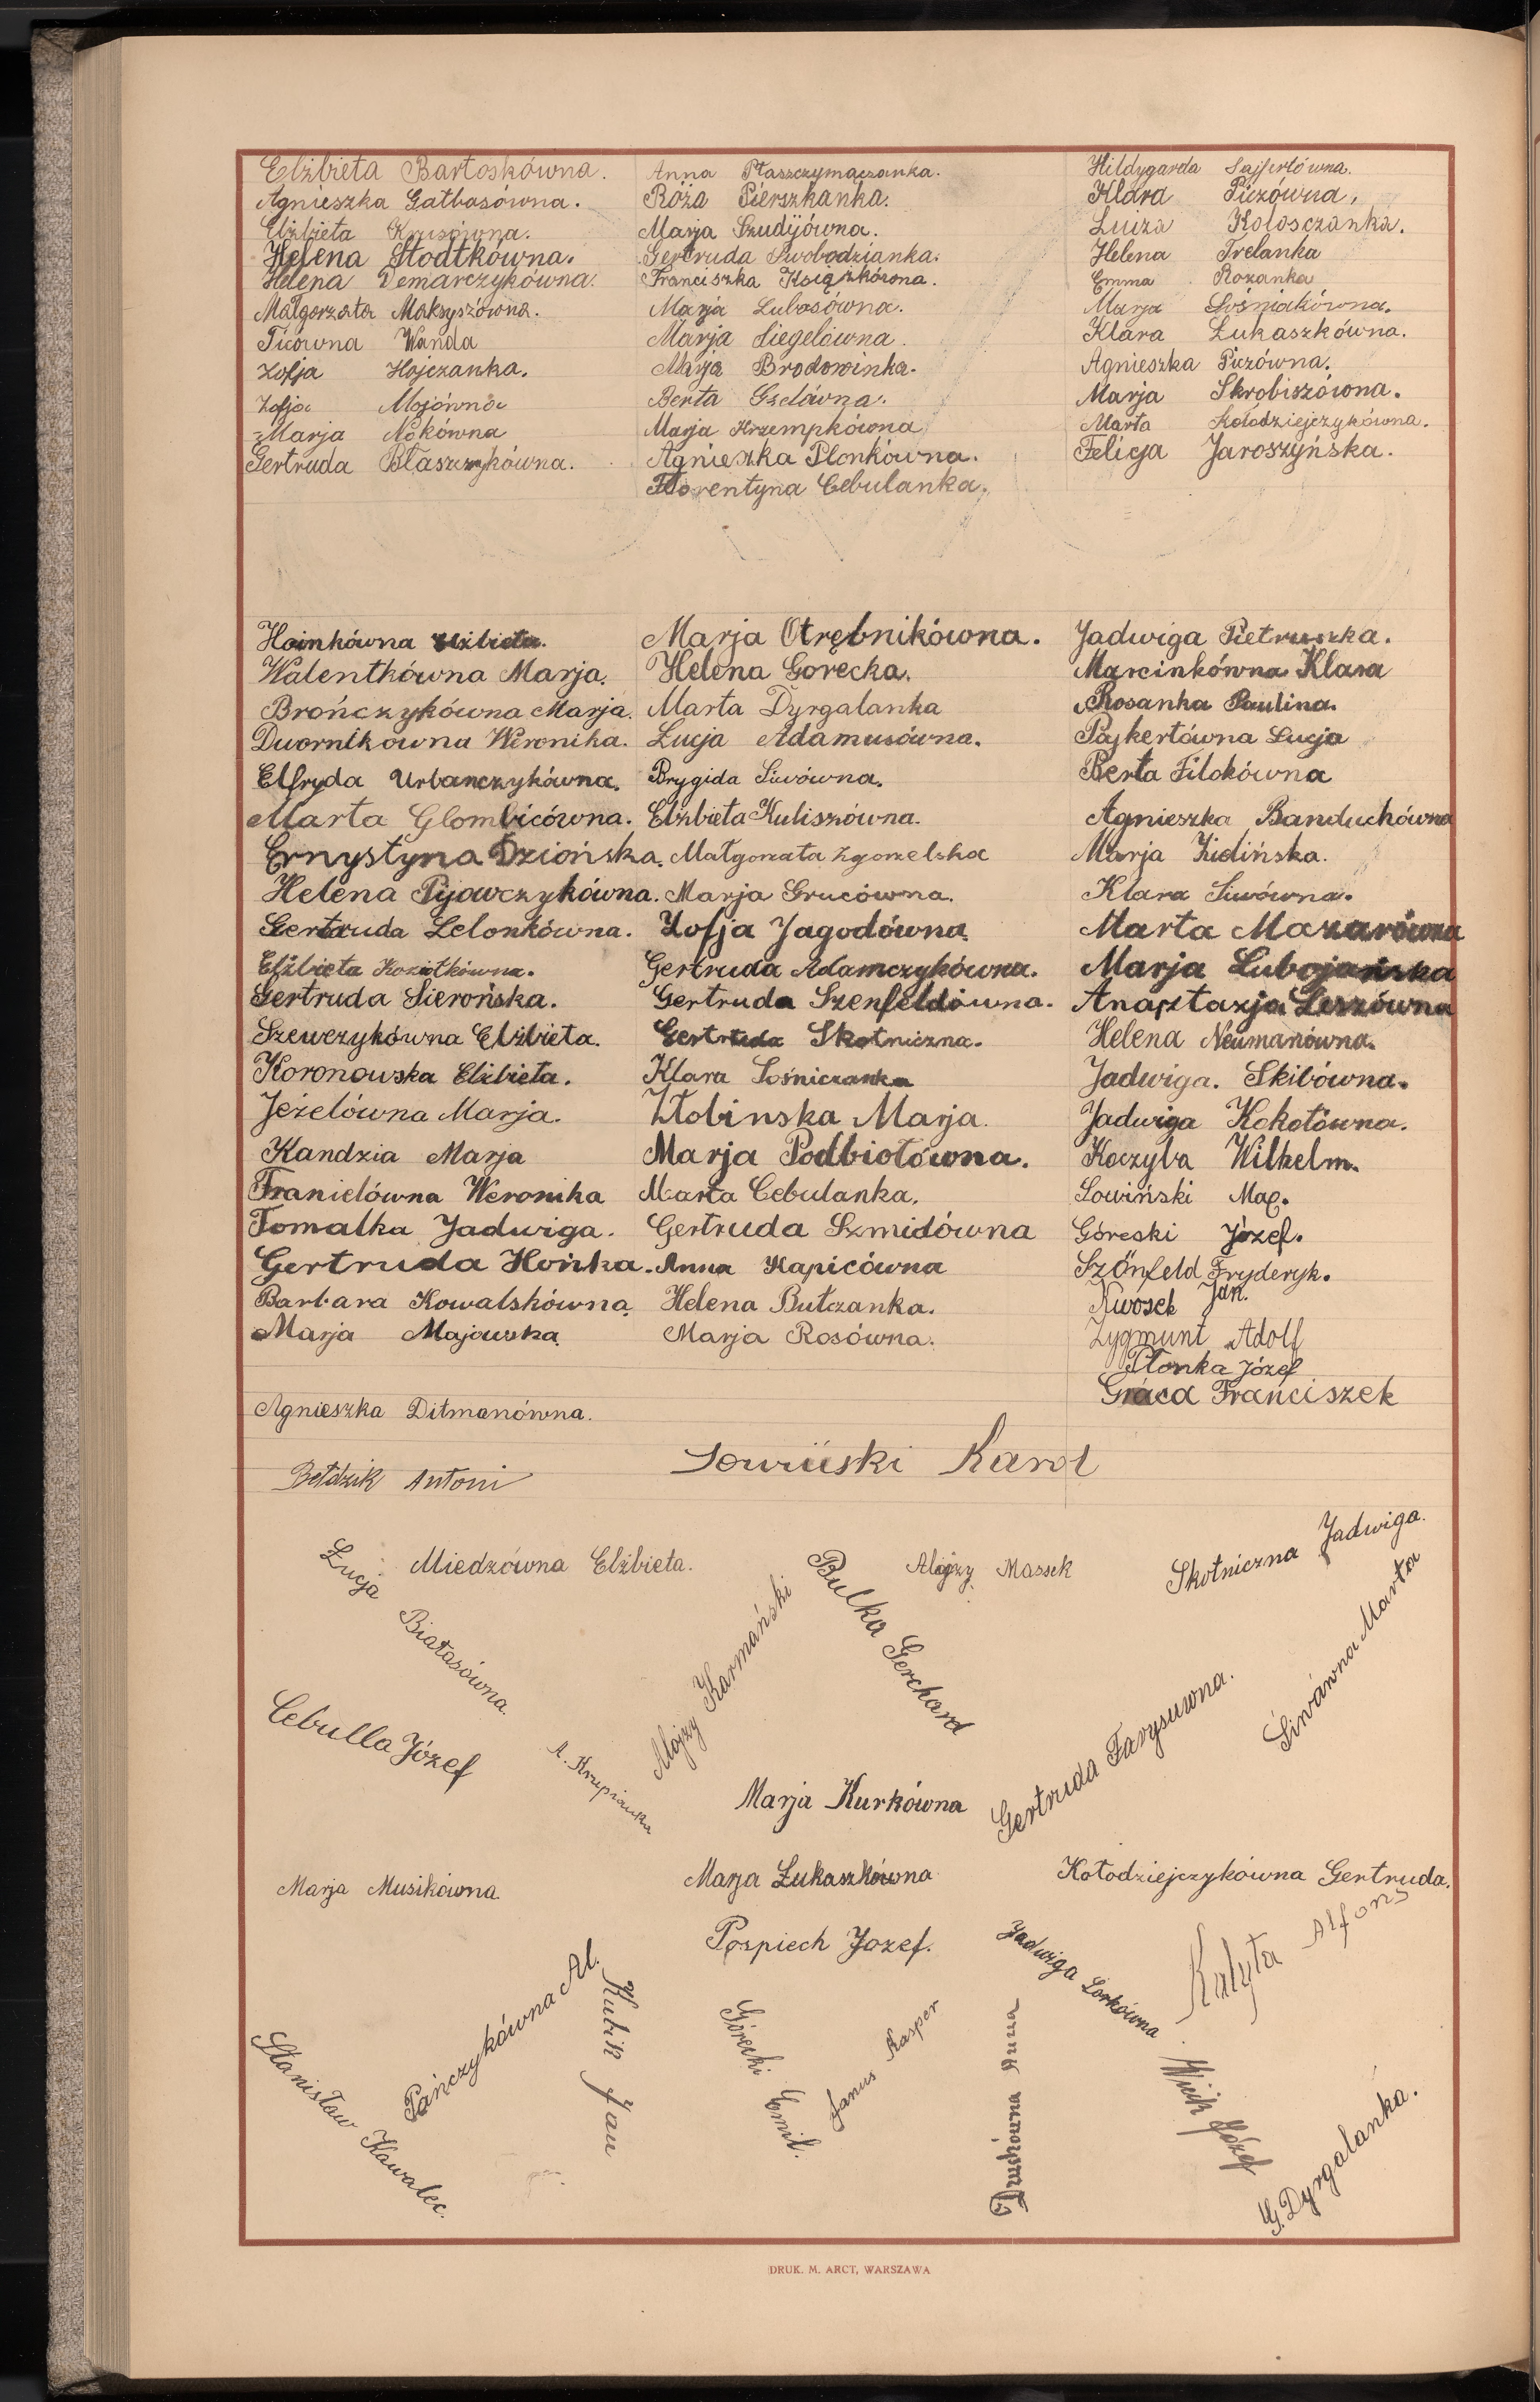 Elżbieta Bartoskówna.
Agnieszka Gatbasówna.
Elżbieta Krusówna.
Helena Słodtkówna.
Helena Demarczykówna.
Małgorzata Maksyszówna.
Ticówna Wanda
Zofja Hojczanka.
Zofja Mojówna
Marja Nokówna
Gertruda Błaszczykówna.
Anna Płaszczymączanka.
Róża Pierszkanka.
Marja Szudyjówna.
Gertruda Swobodzianka.
Franciszka Książkówna.
Marja Lubosówna.
Marja Siegelówna.
Marja Brodowinka.
Berta Gzelówna.
Marja Krzempkówna
Agnieszka Plonkówna.
Florentyna Cebulanka.
Hildygarda Sajfertówna.
Klara Piczówna,
Luiza Kolosczanka.
Helena Trelanka
Emma Rozanka
Marja Sośniakówna.
Klara Łukaszkówna.
Agnieszka Piczówna.
Marja Skrobiszówna.
Marta Kołodziejczykówna.
Felicja Jaroszyńska.
Hainkówna Elżbieta.
Walentkówna Marja.
Brończykówna Marja.
Dwornikówna Weronika.
Elfryda Urbanczykówna.
Marta Glombicówna.
Ernystyna Dziońska.
Helena Pijowczykówna.
Gertruda Lelonkówna.
Elżbieta Koziołkówna.
Gertruda Sierońska.
Szewczykówna Elżbieta.
Koronowska Elżbieta.
Jeżelówna Marja.
Kandzia Marja
Franielówna Weronika
Tomalka Jadwiga.
Gertruda Hońka.
Barbara Kowalskówna.
Marja Majowska.
Agnieszka Ditmanówna.
Marja Otrębnikówna.
Helena Górecka.
Marta Dyrgalanka
Łucja Adamusówna.
Brygida Siwówna.
Elżbieta Kuliszówna.
Małgorzata Zgorzelska
Marja Grucówna.
Zofja Jagodówna.
Gertruda Adamczykówna.
Gertruda Szenfeldówna.
Gertruda Skotniczna.
Klara Sośniczanka
Złobinska Marja.
Marja Podbiołówna.
Marta Cebulanka.
Gertruda Szmidówna
Anna Kapicówna
Helena Bułczanka.
Marja Rosówna.
Jadwiga Pietruszka.
Marcinkówna Klara
Rosanka Paulina.
Pajkertówna Łucja
Berta Filokówna
Agnieszka Banduchówna
Marja Zielińska.
Klara Siwówna.
Marta Mazurówna
Marja Lubojańska
Anasztazja Leszówna
Helena Neumanówna.
Jadwiga. Skibówna.
Jadwiga Kokotówna.
Koczyba Wilhelm.
Sowiński Maq.
Góreski Józef.
Szőnfeld Fryderyk.
Kwosek Jan.
Zygmunt Adolf
Płonka Józef
Graca Franciszek
Bełdzik Antoni
Sowiński Karol
Łucja Białasówna.
Miedzówna Elżbieta.
Alojzy Karmański
Bulka Gerchard
Alojzy Massek
Skotniczna Jadwiga.
Siwówna Marta
Cebulla Józef
A. Krupianka
Marja Kurkówna
Gertruda Farysuwna.
Marja Musikówna.
Marja Łukaszkówna
Kołodziejczykówna Gertruda.
Pospiech Jozef.
Jadwiga Lorkówna
Kalyta Alfons
Stanisław Kawalec.
Pańczykówna Al.
Kubik Jan
Górecki Emil.
Janus Kasper
Druchówna Anna
Wicik Józef
G. Dyrgalanka.
DRUK. M. ARCT, WARSZAWA